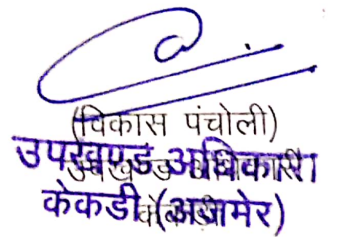 (विकास पंचोली)
उपखण्ड अधिकारी
केकडी (अजमेर)